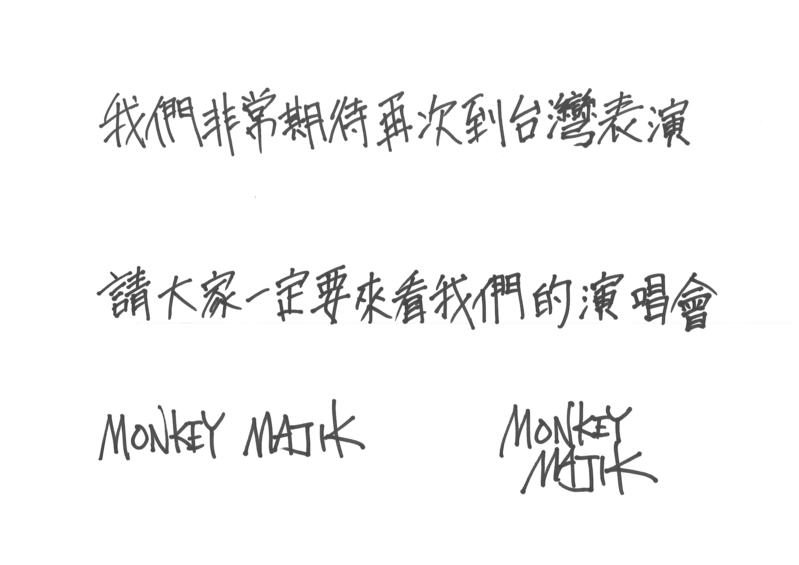 我們非常期待再次到台灣表演
請大家一定要來看我們的演唱會
MONKEY MAJIK
MONKEY
MAJIK